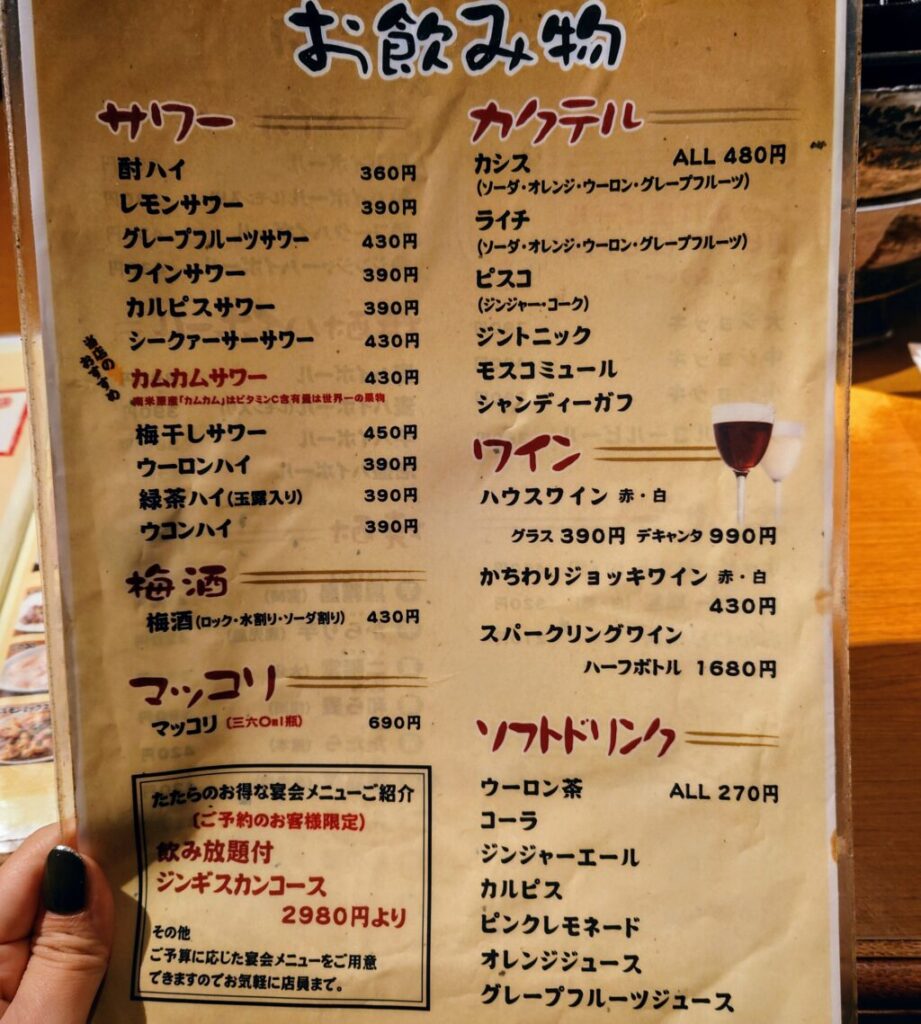 お飲み物
サワー
酎ハイ 360円
レモンサワー 390円
グレープフルーツサワー 430円
ワインサワー 390円
カルピスサワー 390円
シークァーサーサワー 430円
当店の
おすすめ
カムカムサワー 430円
南米原産「カムカム」はビタミンC含有量は世界一の果物
梅干しサワー 450円
ウーロンハイ 390円
緑茶ハイ(玉露入り) 390円
ウコンハイ 390円
梅酒
梅酒(ロック・水割り・ソーダ割り) 430円
マッコリ
マッコリ(三六〇ml瓶) 690円
たたらのお得な宴会メニューご紹介
(ご予約のお客様限定)
飲み放題付
ジンギスカンコース
2980円より
その他
ご予算に応じた宴会メニューをご用意
できますのでお気軽に店員まで。
カクテル
カシス ALL 480円
(ソーダ・オレンジ・ウーロン・グレープフルーツ)
ライチ
(ソーダ・オレンジ・ウーロン・グレープフルーツ)
ピスコ
(ジンジャー・コーク)
ジントニック
モスコミュール
シャンディーガフ
ワイン
ハウスワイン 赤・白
グラス 390円 デキャンタ 990円
かちわりジョッキワイン 赤・白
430円
スパークリングワイン
ハーフボトル 1680円
ソフトドリンク
ウーロン茶 ALL 270円
コーラ
ジンジャーエール
カルピス
ピンクレモネード
オレンジジュース
グレープフルーツジュース